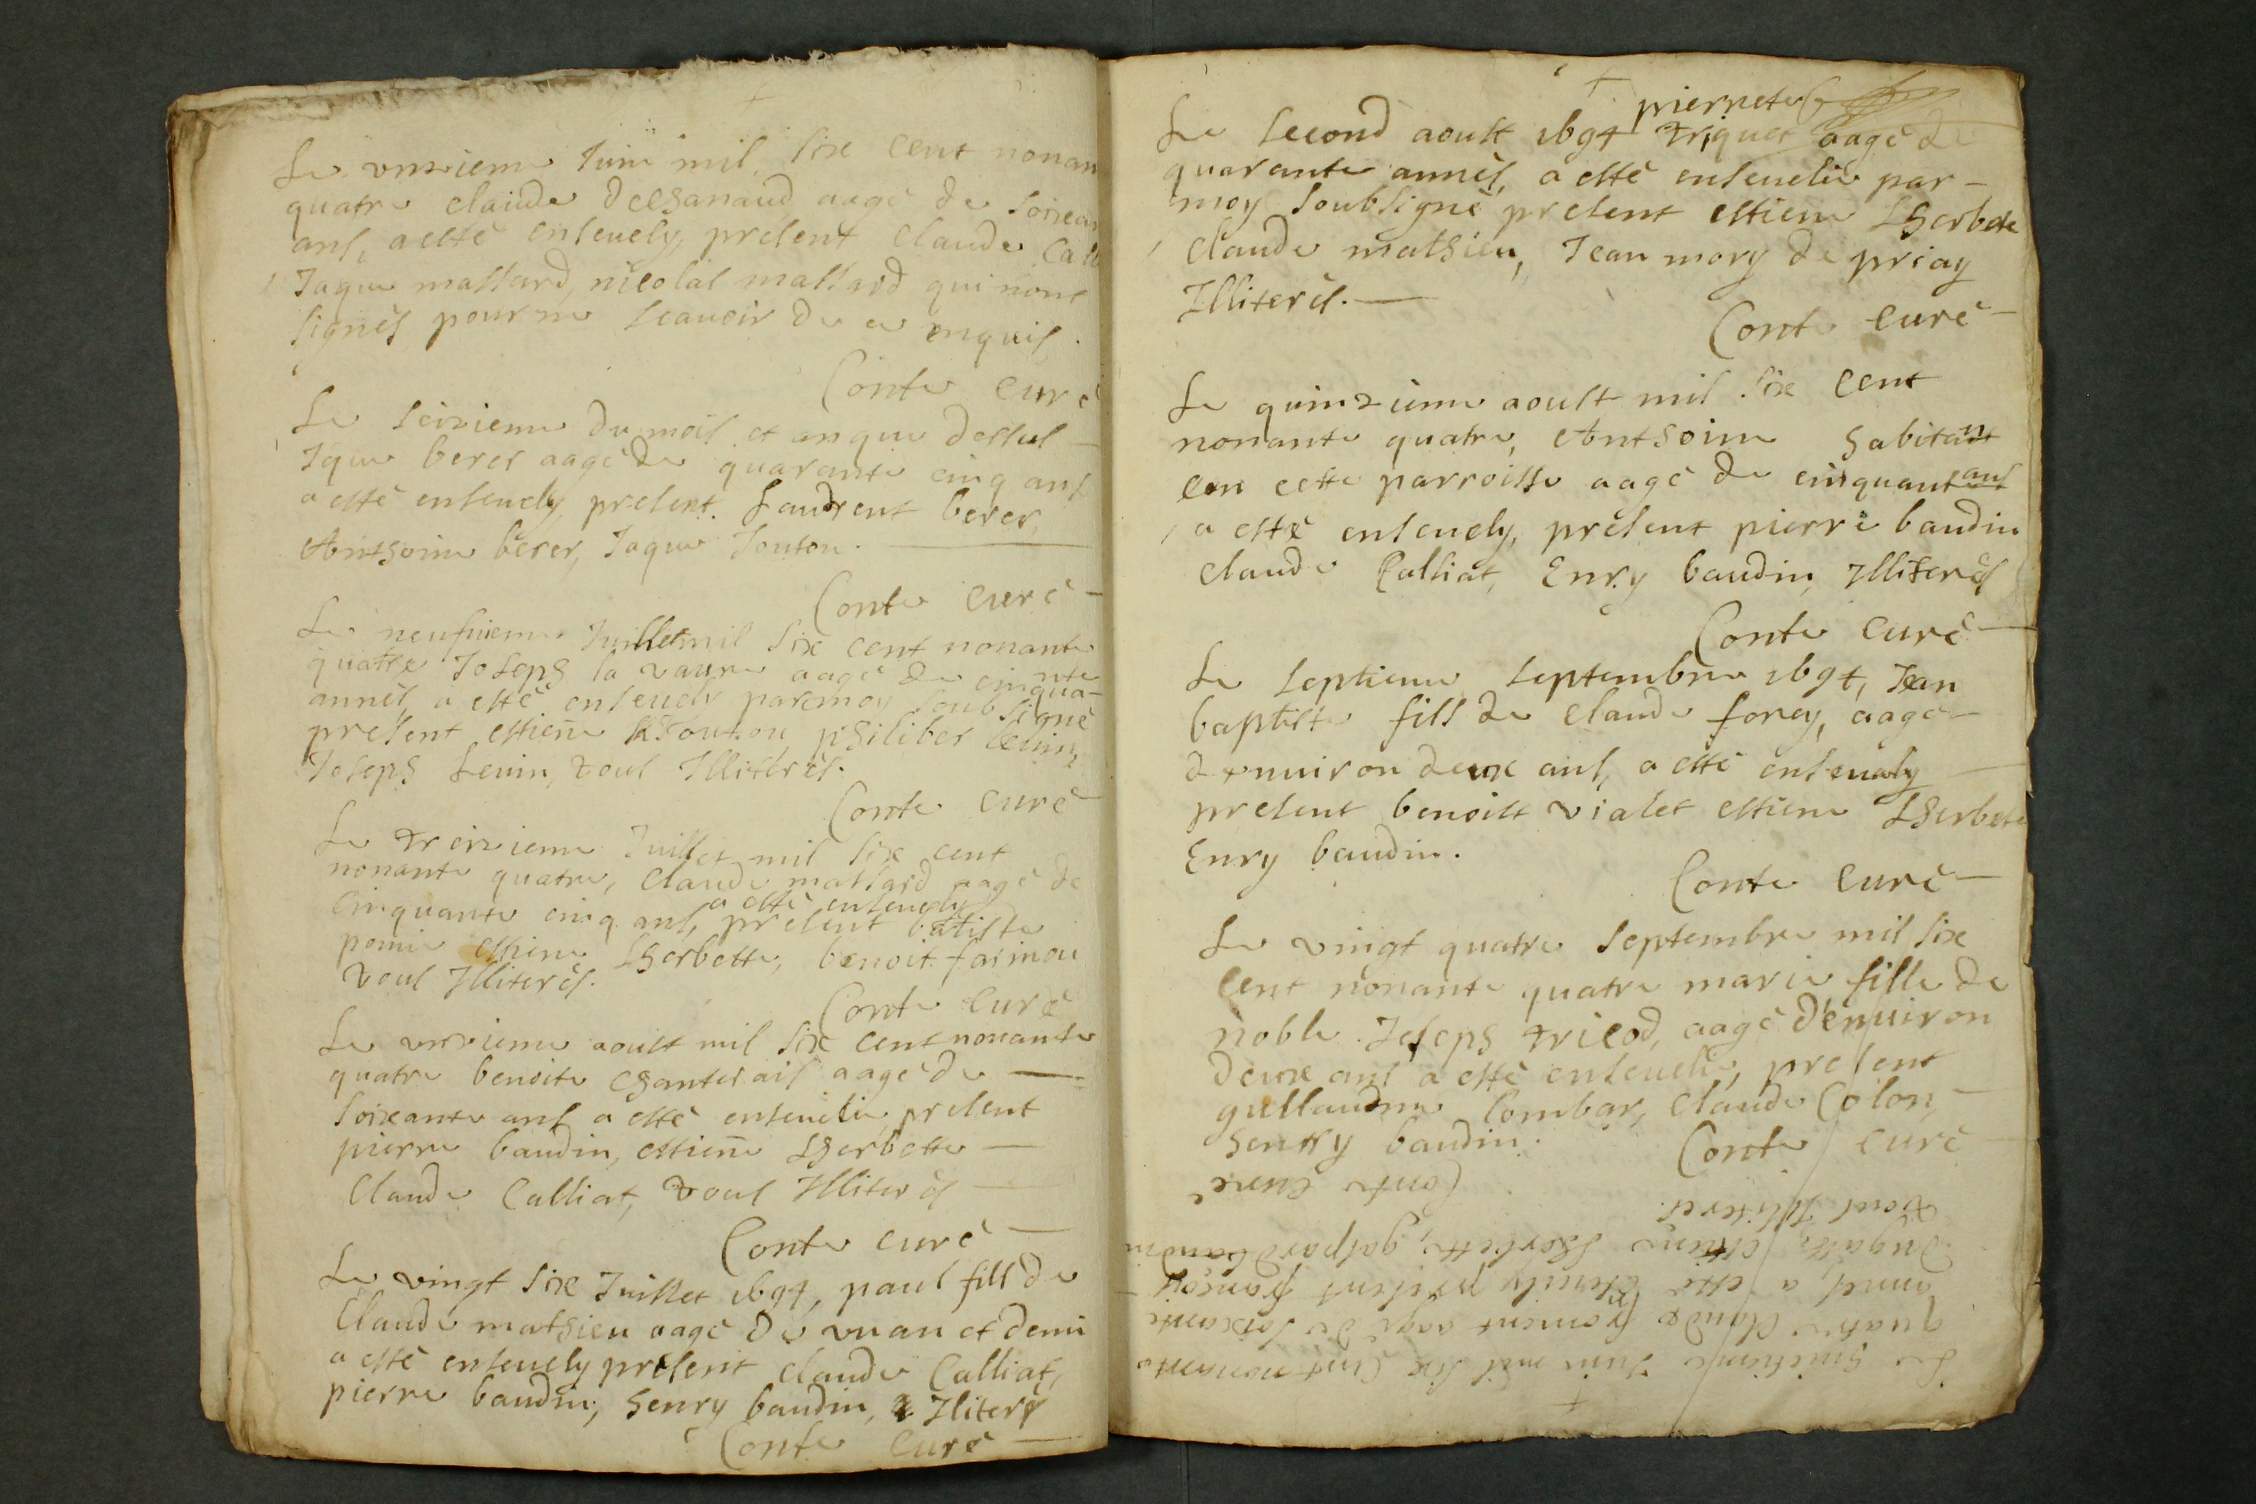 Le vnzieme Juin mil six cent nonan
quatre claude dechanaud aagé de soixan
ans, a esté enseuely, présent claude Call
Jaque massard, nicolas massard qui nont
signés pour ne scauoir de ce enquis.
Conte curé
Le seizieme du mois et an que dessus
Jque berer aagé de quarante cinq ans
a esté enseuely, présent. Laudrent berer,
Anthoine berer, Jaque Jouton.
Conte curé
Le neufuieme Juillet mil six cent nonante
quatre Joseph la vaure aagé de cinquante
annés, a esté enseuely par moy soubsigné
présent estiene Joutou, philiber Leuin,
Joseph Leuin, tous Illiterés.
Conte curé
Le treizieme Juillet mil six cent
nonante quatre, Claude massard aagé de
Cinquante cinq ans, a esté enseuely présent batiste
pomie estiene Lherbette, benoit farinou
tous Illiterés.
Conte curé
Le vnzieme aoust mil six cent nonante
quatre benoite chanterais aagé de
soixante ans a esté enseuelie, présent
pierre baudin, estiene Lherbette
Claude Calliat, tous Illiterés
Conte curé
Le vingt six Juillet 1694, paul fils de
Claude mathieu aagé de vn an et demi
a esté enseuely présent claude Calliat,
pierre baudin, henry baudin, Iliterés
Conte Curé
pierrete
Le second aoust 1694 triquet aagé de
quarante annés, a esté enseuelie par
moy soubsigné présent estiene Lherbete
Claude mathieu, Jean mory de priay
Illiterés.
Conte curé
Le quinzieme aoust mil six cent
nonante quatre, Anthoine habitant
en cette parroisse aagé de cinquant ans
a esté enseuely, présent pierre baudin
Claude Calliat, Enry baudin, Illiterés
Conte curé
Le septieme septembre 1694, Jean
baptiste fils de claude forey, aagé
denuiron deux ans, a esté enseuely
présent benoist vialet estiene Lherbete
Enry baudin.
Conte curé
Le vingt quatre septembre mil six
Cent nonante quatre marie fille de
noble Joseph tricod, aagé d'enuiron
deux ans a esté enseuelie, présent
gullaudme Combar, claude Colon
henry baudin.
Conte curé
Le huictieme Juin mil six Cent nonante
quatre Claude froment aagé de soixante
annés a esté enseuely présent françois
Dugast, estiene Lherbette, gaspard baudin
tous Illiterés.
Conte curé